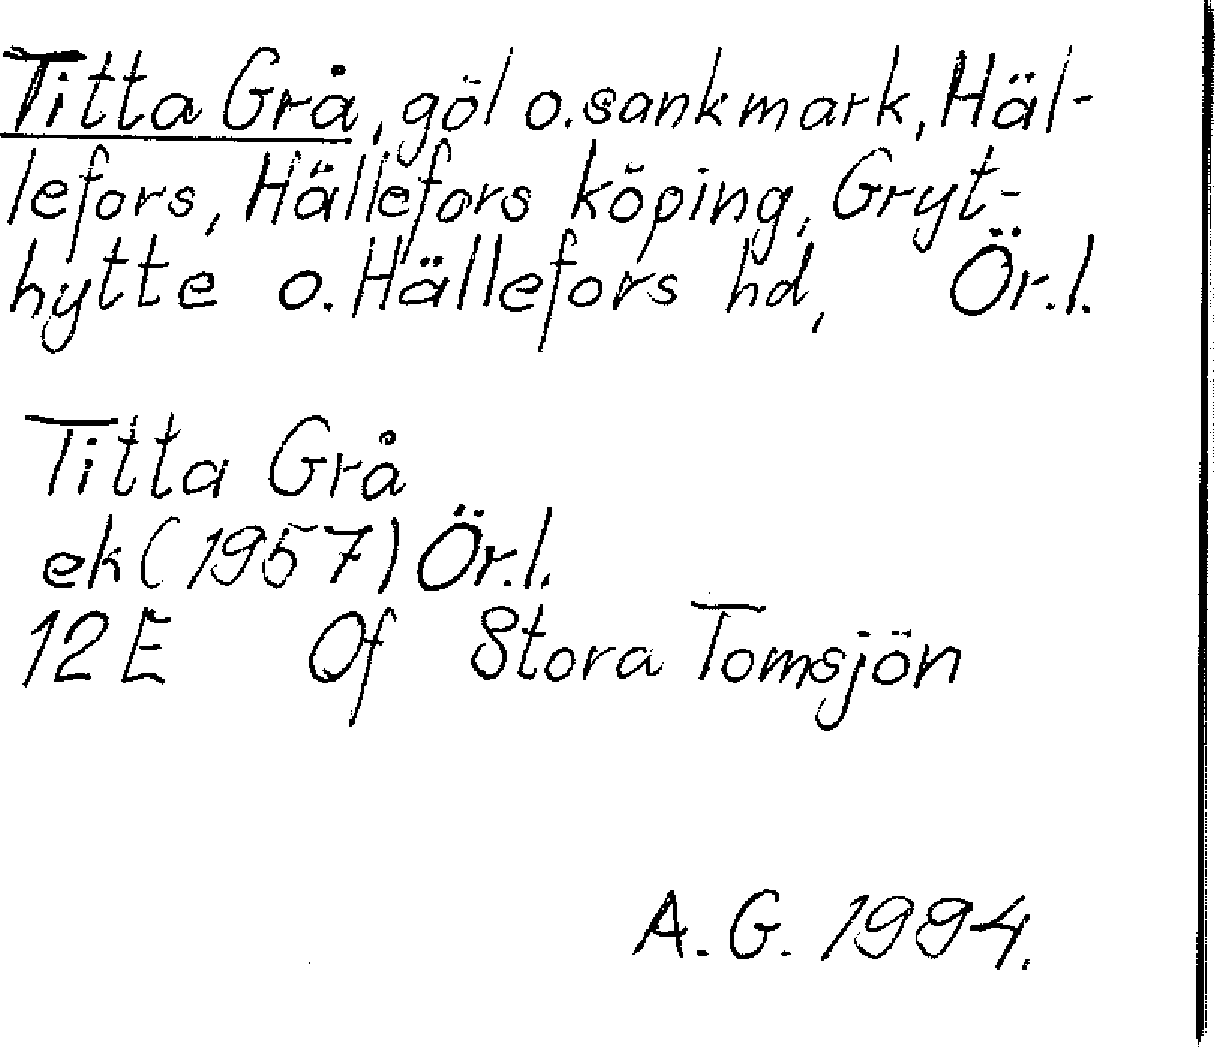 Titta Grå, göl o. sankmark, Häl-
lefors, Hällefors köping, Gryt-
hytte o. Hällefors hd, Ör.l.
Titta Grå
ek (1957) Ör.l.
12E Of Stora Tomsjön
A.G. 1994.